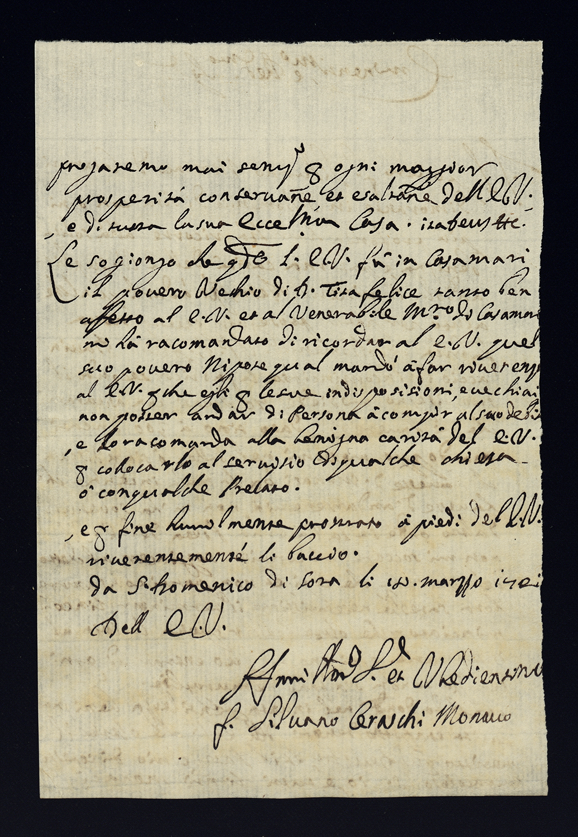 pregaremo mai sempre ogni maggior
prosperità conservañe et esaltañe dell E.V.
e di tutta la sua Eccellma Casa.
Le sogionzo che L. E.V. fù in Casamari
il povero Vechio di Titta felice tanto ben
affetto al E.V. et al Venerabile Mro di Casamri
mi hà racomandato di ricordar al E.V. quel
suo povero Nipote qual mandò à far riverenza
al E.V. che egli le sue indispositioni, e vechiai
non posser andar di Persona à compir al suo debi
e lo racomanda alla benigna carità del E.V.
collocarlo al servitio di qualche chiesa
ò con qualche Prelato.
e fine humilmente prostrato à piedi del E.V.
riverentemente li baccio.
da S. Domenico di Sora li marzo
Dell E.V.
Humill S. et
f. Silvano Ceraschi Monaco